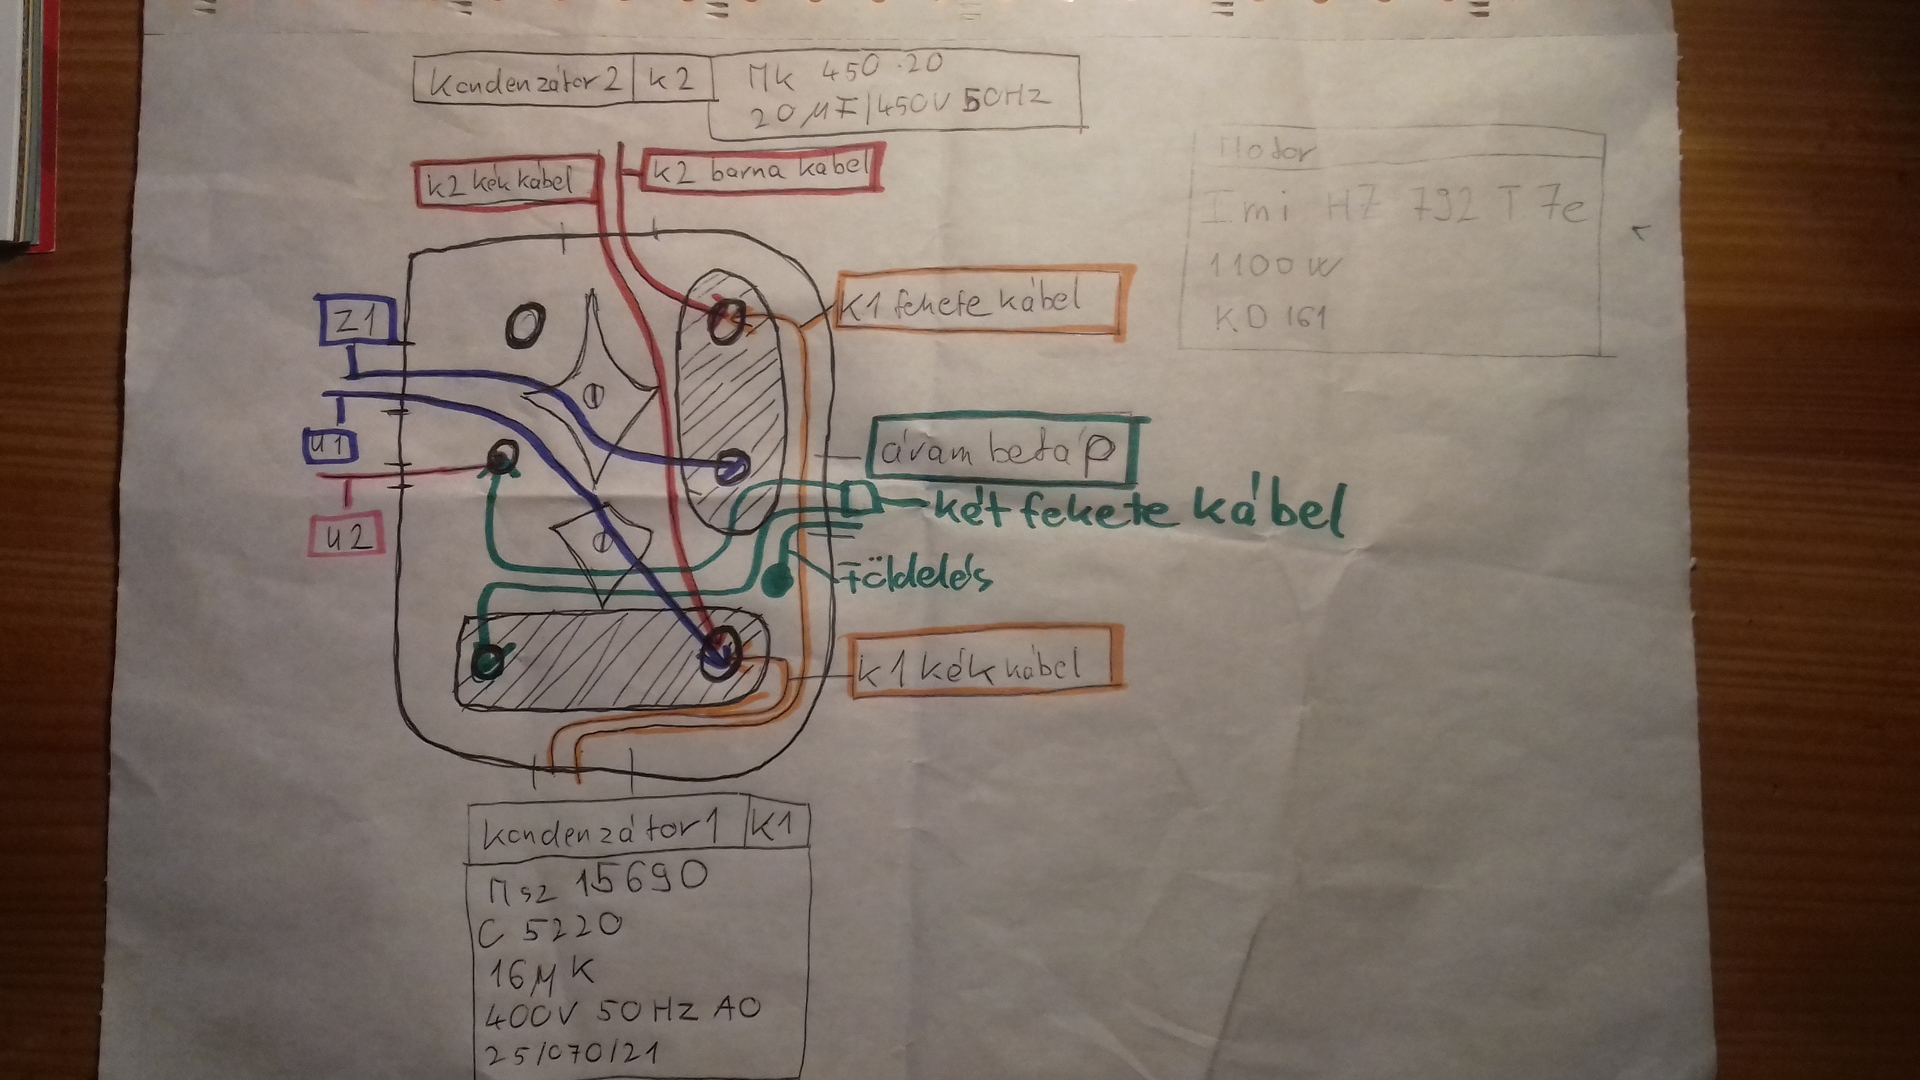 Kondenzátor 2 K2
MK 450.20
20 μF/450V 50HZ
K2 kék kábel
K2 barna kábel
Motor
Imi HZ 792 T 7e
1100 W
KD 161
Z1
K1 fekete kábel
U1
áram betáp
két fekete kábel
U2
Földelés
K1 kék kábel
Kondenzátor 1 K1
Msz 15690
C 5220
16μ K
400V 50 HZ AO
25/070/21